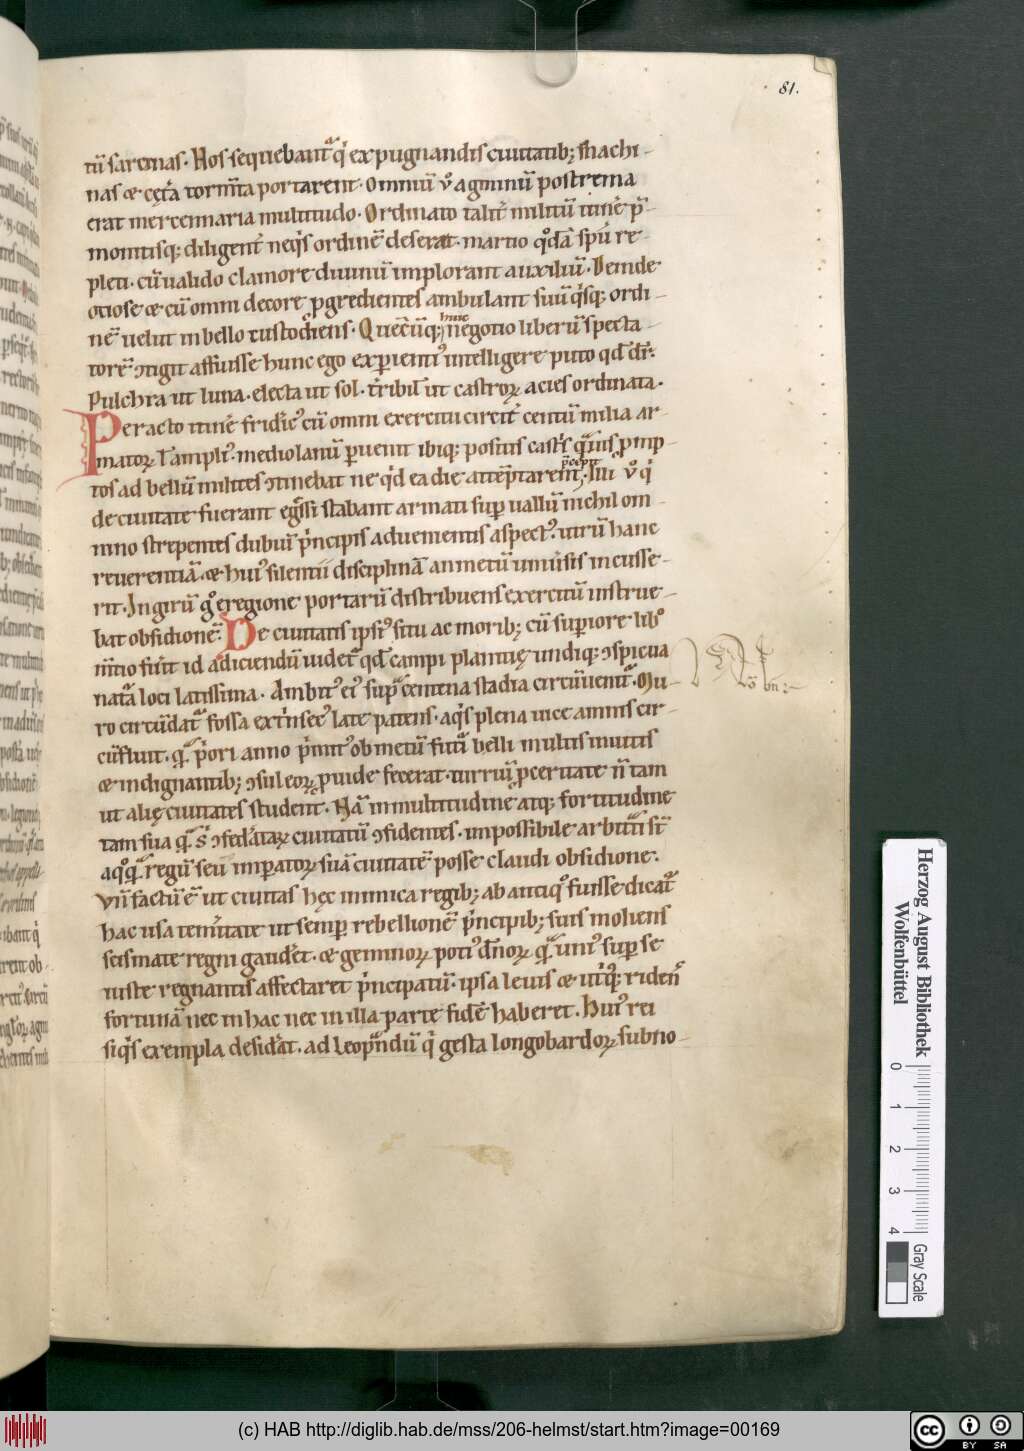 81.
tū sarcinas. Hos sequebant᷑ q̇ expugnandis ciuitatib; machi-
nas & cęt̄a torm̄ta portarent. Omniū v̊ agminū postrema
erat mercennaria multitudo. Ordinato talit̄ militū itinē p̄-
monitisq; diligent̄ neq̇s ordinē deserat. martio q̊dā spū re-
pleti. cū ualido clamore diuinū implorant auxiliū. Deinde
ociose & cū omni decore ꝓgredientes ambulant suū q̇sq; ordi-
nē uelut in bello custodiens. Quēcūq; huic negotio liberū specta-
torē ↄtigit affuisse hunc ego exꝑientius intelligere puto qd dr̄.
Pulchra ut luna. electa ut sol. t̄ribil̄ ut castroꝝ acies ordinata.
Peracto itinē fridic᷒ cū omni exercitu circit̄ centū milia ar-
matoꝝ l̄ ampli᷒. mediolanū ꝑuenit ibiq; positis cast̄s q̄uis ꝓmp-
tos ad bellū milites ↄtinebat ne q̇d ea die attēptarent p̄cepit. Illi v̊ q̇
de ciuitate fuerant eḡssi stabant armati suꝑ uallū nichil om-
nino strepentes dubiū p̄ncipis aduenientis aspect᷒. utrū hanc
reuerentiā. & hui᷒ silentii disciplinā an metū uniūsis incusse-
rit. In girū g̊ e regione portarū distribuens exercitū instrue-
bat obsidionē. De ciuitatis ipsi᷒ situ ac morib; cū suꝑiore libº
m̄tio fūit id adiciendū uidet᷑ qd campi planitię undiq; ↄspicua
nat᷑a loci latissima. Ambit᷒ ei᷒ sup᷑ centena stadia circūuenit᷑. Mu-
ro circūdat᷑ fossa ext̄nsec᷒ late patens. aq̇s plena uice amnis cir-
cūfluit. q᷑ p̄ori anno p̄mit᷒ ob metū futū belli multis inuitis
& indignantib; ↄsul eoꝝ ꝓuide fecerat. turriū ꝓceritate n̄ tam
ut alię ciuitates student. Nā in multitudine atq; fortitudine
tam sua q᷑ s̄ ↄfed̄ataꝝ ciuitatū ↄfidentes. impossibile arbit᷑ti st̄
a q̊q᷑ regū seu imꝑatoꝝ suā ciuitatē posse claudi obsidione.
Vn̄ factū ē ut ciuitas hęc inimica regib; ab antiq̊ fuisse dicat᷑
hac usa tem̄itate ut semꝑ rebellionē p̄ncipib; suis moliens
scismate regni gaudēt. & geminoꝝ poti᷒ dn̄oꝝ q᷑ uni᷒ suꝑ se
iuste regnantis affectaret p̄ncipatū. ipsa leuis & ut̄q; ridens
fortunā nec in hac nec in illa parte fidē haberet. Hui᷒ rei
siq̇s exempla desid̄at. ad Leop᷑ndū q̇ gesta longobardoꝝ subtio-
Herzog August Bibliothek
Wolfenbüttel
0 1 2 3 4
Gray Scale
(c) HAB http://diglib.hab.de/mss/206-helmst/start.htm?image=00169
cc BY SA